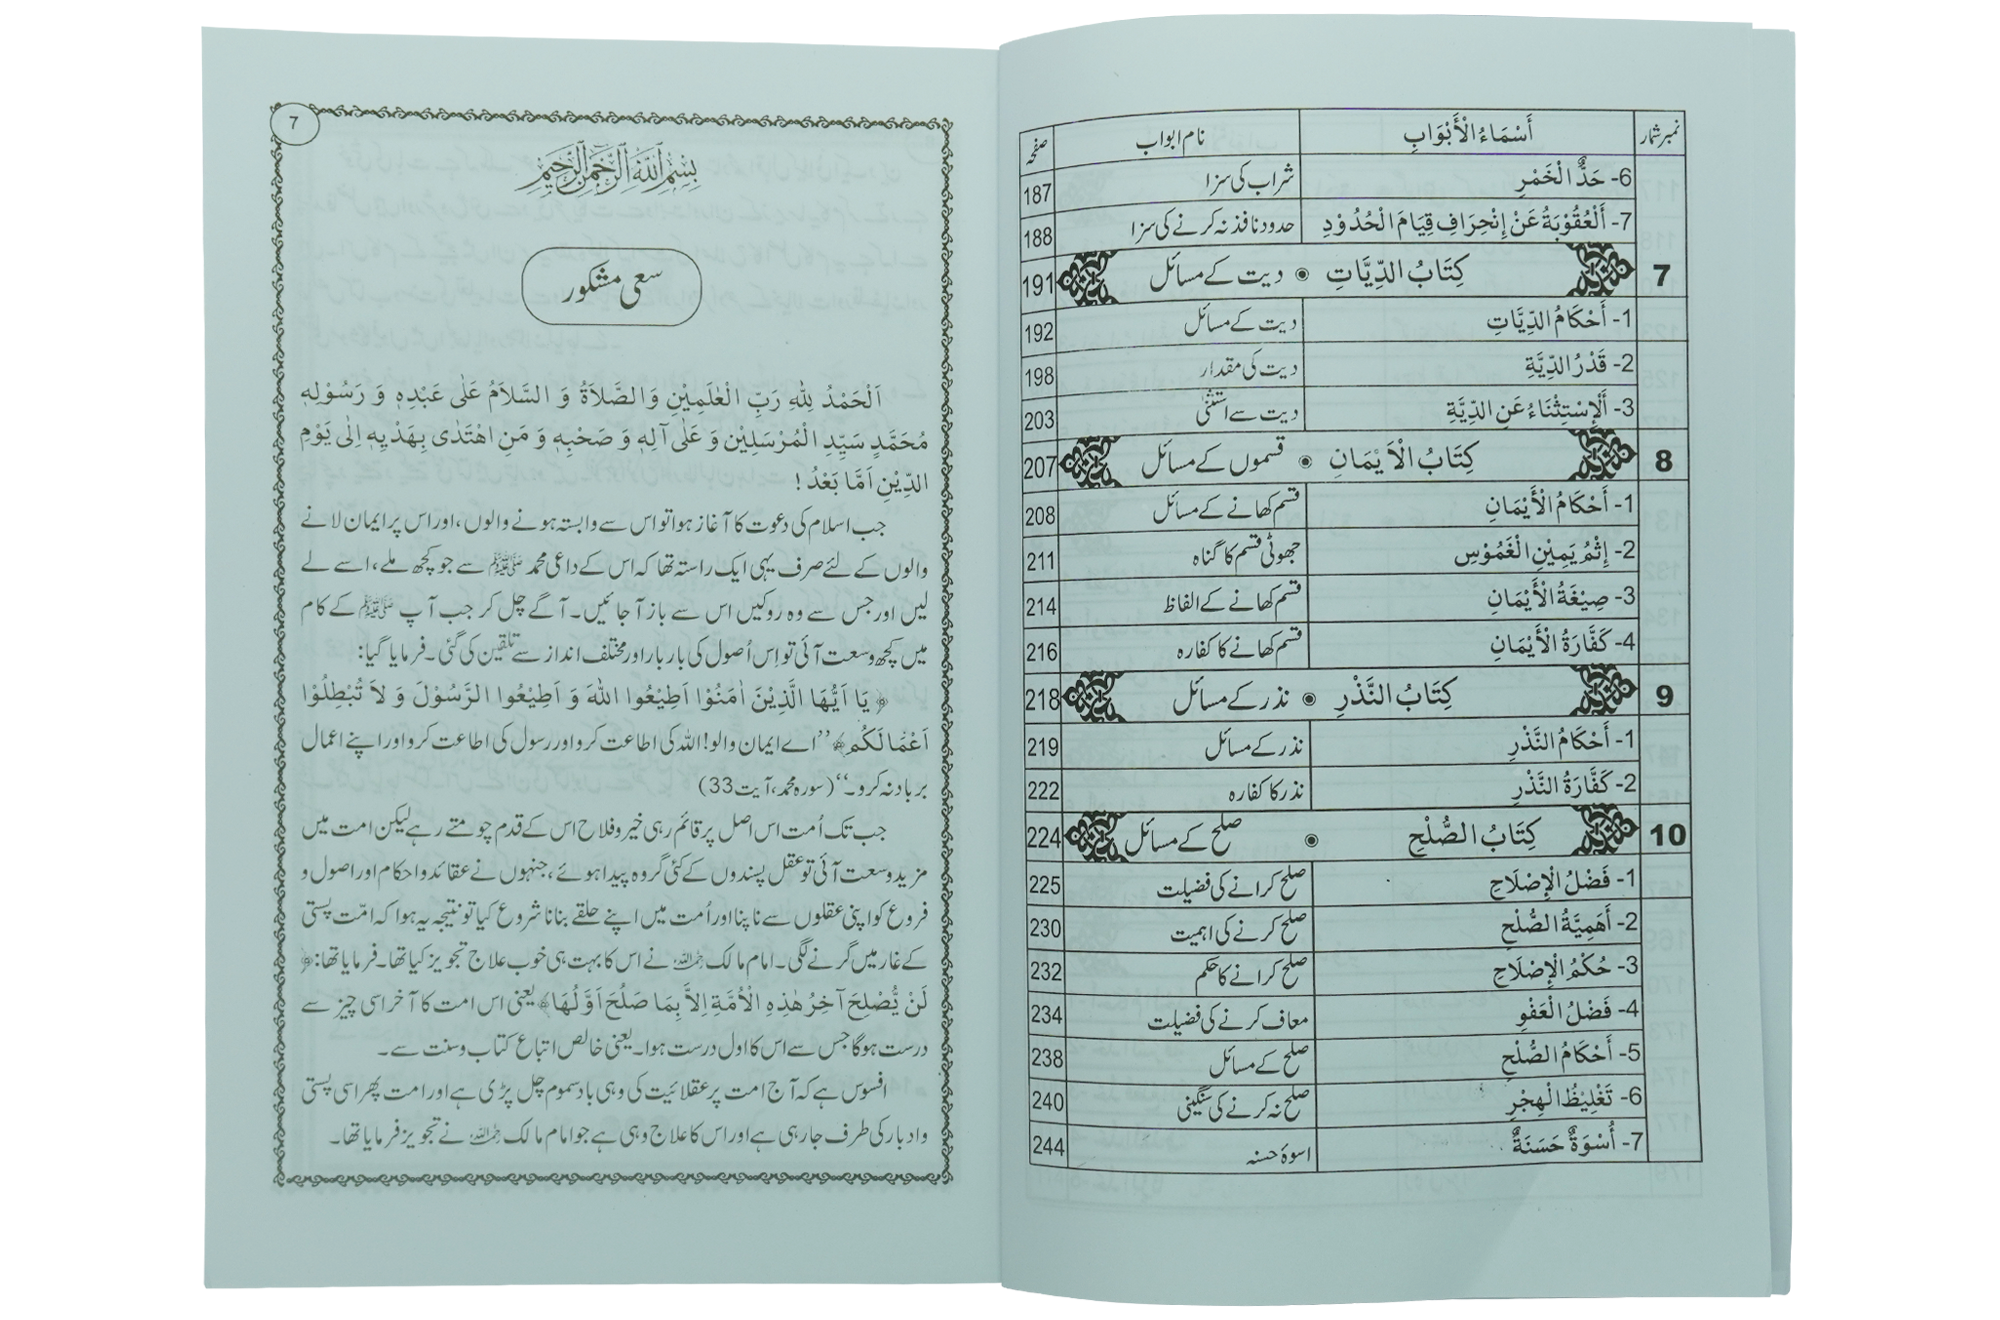 نمبر شمار أَسْمَاءُ الْأَبْوَابِ نام ابواب صفحہ
6- حَدُّ الْخَمْرِ شراب کی سزا 187
7- أَلْعُقُوْبَةُ عَنْ إِنْحِرَافِ قِيَامَ الْحُدُوْدِ حدود نافذ نہ کرنے کی سزا 188
7 كِتَابُ الدِّيَّاتِ ◉ دیت کے مسائل 191
1- أَحْكَامُ الدِّيَّاتِ دیت کے مسائل 192
2- قَدْرُ الدِّيَّةِ دیت کی مقدار 198
3- أَلْإِسْتِثْنَاءُ عَنِ الدِّيَّةِ دیت سے استثنیٰ 203
8 كِتَابُ الْاَيْمَانِ ◉ قسموں کے مسائل 207
1- أَحْكَامُ الْأَيْمَانِ قسم کھانے کے مسائل 208
2- إِثْمُ يَمِيْنِ الْغَمُوْسِ جھوٹی قسم کا گناہ 211
3- صِيْغَةُ الْأَيْمَانِ قسم کھانے کے الفاظ 214
4- كَفَّارَةُ الْأَيْمَانِ قسم کھانے کا کفارہ 216
9 كِتَابُ النَّذْرِ ◉ نذر کے مسائل 218
1- أَحْكَامُ النَّذْرِ نذر کے مسائل 219
2- كَفَّارَةُ النَّذْرِ نذر کا کفارہ 222
10 كِتَابُ الصُّلْحِ ◉ صلح کے مسائل 224
1- فَضْلُ الْإِصْلَاحِ صلح کرانے کی فضیلت 225
2- أَهَمِيَّةُ الصُّلْحِ صلح کرنے کی اہمیت 230
3- حُكْمُ الْإِصْلَاحِ صلح کرانے کا حکم 232
4- فَضْلُ الْعَفْوِ معاف کرنے کی فضیلت 234
5- أَحْكَامُ الصُّلْحِ صلح کے مسائل 238
6- تَغْلِيْظُ الْهِجْرِ صلح نہ کرنے کی سنگینی 240
7- أُسْوَةٌ حَسَنَةٌ اسوۂ حسنہ 244
7
بِسْمِ اللّٰهِ الرَّحْمٰنِ الرَّحِيْمِ
سعی مشکور
اَلْحَمْدُ لِلّٰهِ رَبِّ الْعٰلَمِيْنَ وَالصَّلَاةُ وَ السَّلَامُ عَلٰى عَبْدِهٖ وَ رَسُوْلِهٖ
مُحَمَّدٍ سَيِّدِ الْمُرْسَلِيْن وَ عَلٰى آلِهٖ وَ صَحْبِهٖ وَ مَنِ اهْتَدٰى بِهَدْيِهٖ اِلٰى يَوْمِ
الدِّيْنِ اَمَّا بَعْدُ !
جب اسلام کی دعوت کا آغاز ہوا تو اس سے وابستہ ہونے والوں، اور اس پر ایمان لانے
والوں کے لئے صرف یہی ایک راستہ تھا کہ اس کے داعی محمد ﷺ سے جو کچھ ملے، اسے لے
لیں اور جس سے وہ روکیں اس سے باز آ جائیں۔ آگے چل کر جب آپ ﷺ کے کام
میں کچھ وسعت آئی تو اِس اُصول کی بار بار اور مختلف انداز سے تلقین کی گئی۔ فرمایا گیا:
﴿ يَا اَيُّهَا الَّذِيْنَ اٰمَنُوْا اَطِيْعُوا اللّٰهَ وَ اَطِيْعُوا الرَّسُوْلَ وَ لاَ تُبْطِلُوْا
اَعْمَالَكُمْ﴾ ’’اے ایمان والو! اللہ کی اطاعت کرو اور رسول کی اطاعت کرو اور اپنے اعمال
برباد نہ کرو۔‘‘ (سورہ محمد، آیت 33)
جب تک اُمت اس اصل پر قائم رہی خیر و فلاح اس کے قدم چومتے رہے لیکن امت میں
مزید وسعت آئی تو عقل پسندوں کے کئی گروہ پیدا ہوئے، جنہوں نے عقائد و احکام اور اصول و
فروع کو اپنی عقلوں سے ناپنا اور اُمت میں اپنے حلقے بنانا شروع کیا تو نتیجہ یہ ہوا کہ امّت پستی
کے غار میں گرنے لگی۔ امام مالک رحمہ اللہ نے اس کا بہت ہی خوب علاج تجویز کیا تھا۔ فرمایا تھا: ﴿
لَنْ يُّصْلِحَ آخِرُ هٰذِهِ الْاُمَّةِ اِلاَّ بِمَا صَلُحَ اَوَّلُهَا﴾ یعنی اس امت کا آخر اسی چیز سے
درست ہوگا جس سے اس کا اول درست ہوا۔ یعنی خالص اتباع کتاب وسنت سے۔
افسوس ہے کہ آج امت پر عقلائیت کی وہی باد سموم چل پڑی ہے اور امت پھر اسی پستی
و ادبار کی طرف جارہی ہے اور اس کا علاج وہی ہے جو امام مالک رحمہ اللہ نے تجویز فرمایا تھا۔